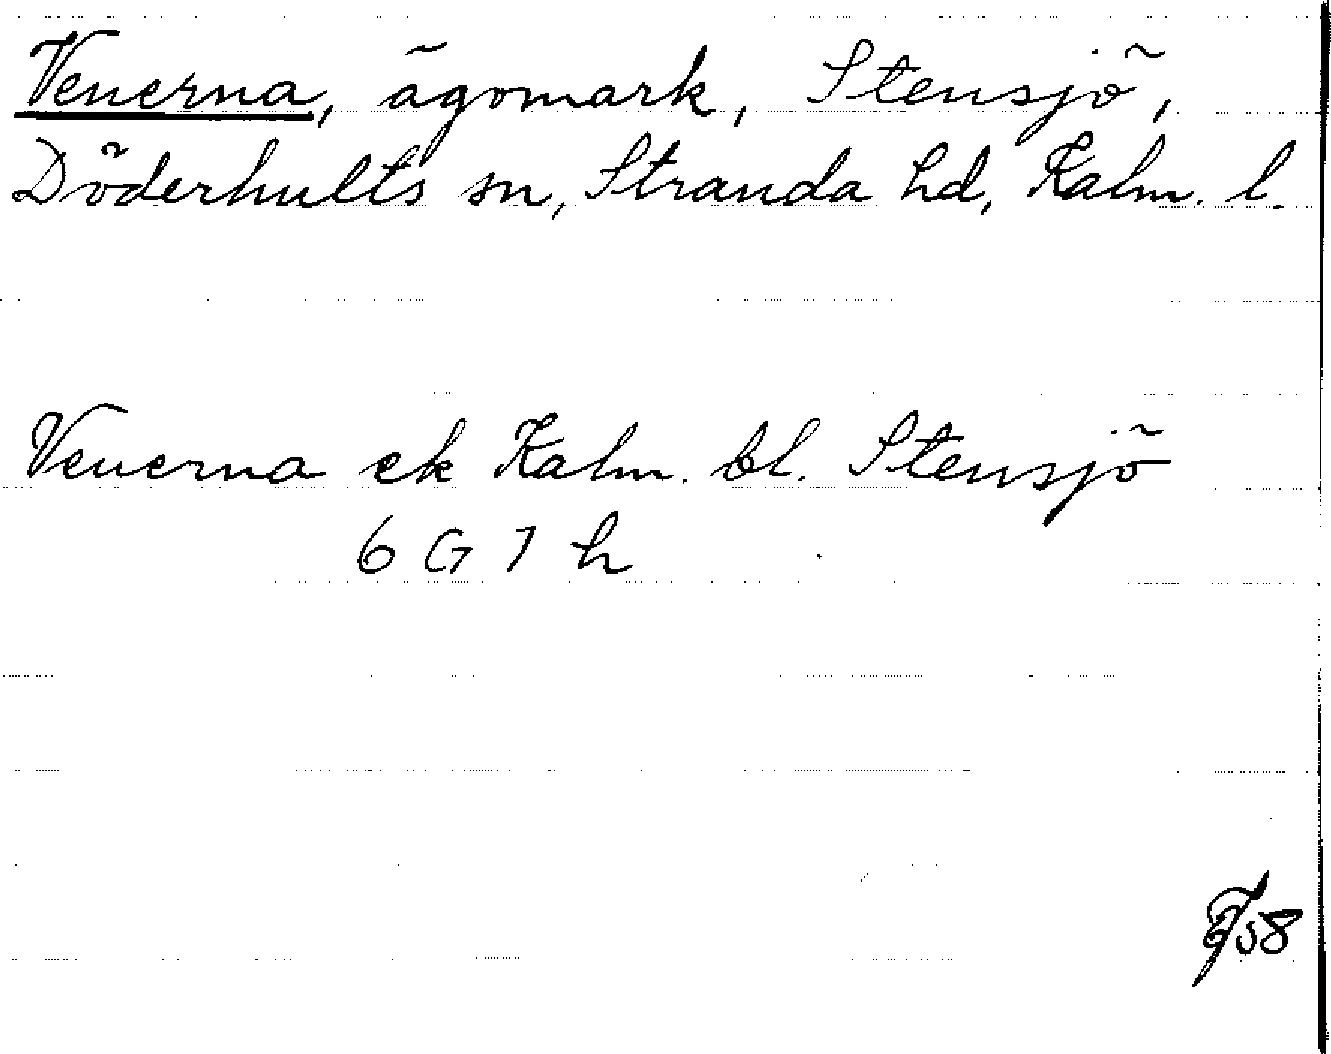 Venerna, ägomark, Stensjö,
Döderhults sn, Stranda hd, Kalm. l.
Venerna ek Kalm. bl. Stensjö
6 G 7 h
58